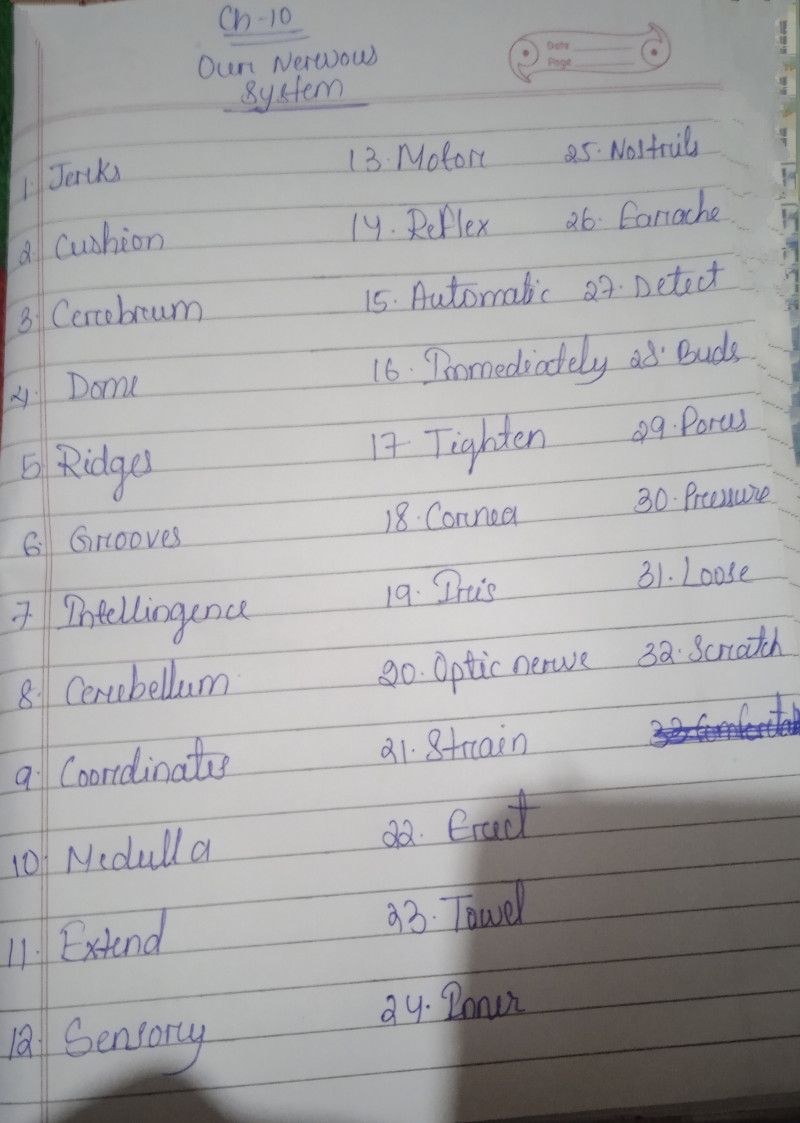 Ch-10
Our Nervous
System
Date
Page
1. Jerks
2. Cushion
3. Cerebrum
4. Dome
5. Ridges
6. Grooves
7. Intellingence
8. Cerebellum
9. Coordinates
10. Medulla
11. Extend
12. Sensory
13. Motor
14. Reflex
15. Automatic
16. Immediately
17. Tighten
18. Cornea
19. Iris
20. Optic nerve
21. Strain
22. Erect
23. Towel
24. Inner
25. Nostrils
26. Earache
27. Detect
28. Buds
29. Pores
30. Pressure
31. Loose
32. Scratch